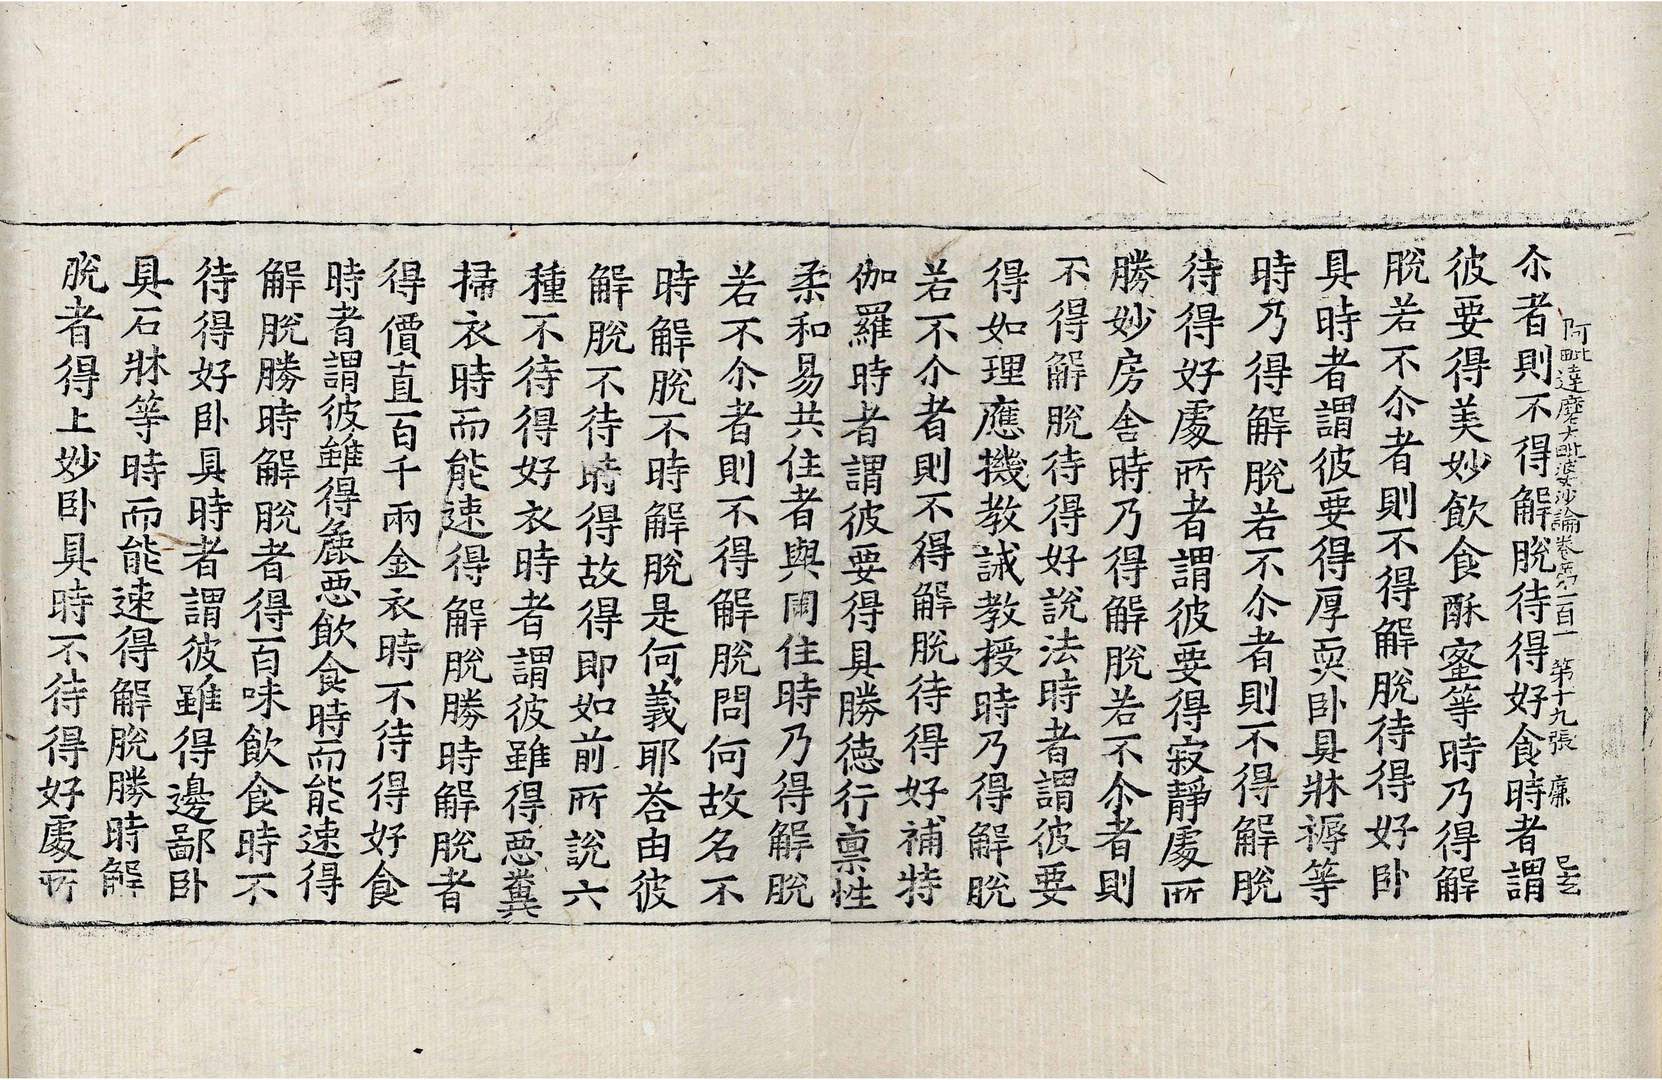 阿毗達磨大毗婆沙論卷第一百一 第十九張 廉
尒者則不得解脫待得好食時者謂
彼要得美妙飲食酥蜜等時乃得解
脫若不尒者則不得解脫待得好卧
具時者謂彼要得厚耎卧具牀褥等
時乃得解脫若不尒者則不得解脫
待得好處所者謂彼要得寂靜處所
勝妙房舍時乃得解脫若不尒者則
不得解脫待得好說法時者謂彼要
得如理應機教誡教授時乃得解脫
若不尒者則不得解脫待得好補特
伽羅時者謂彼要得具勝德行稟性
柔和易共住者與同住時乃得解脫
若不尒者則不得解脫問何故名不
時解脫不時解脫是何義耶荅由彼
解脫不待時得故得即如前所說六
種不待得好衣時者謂彼雖得惡糞
掃衣時而能速得解脫勝時解脫者
得價直百千兩金衣時不待得好食
時者謂彼雖得麁惡飲食時而能速得
解脫勝時解脫者得百味飲食時不
待得好卧具時者謂彼雖得邊鄙卧
具石牀等時而能速得解脫勝時解
脫者得上妙卧具時不待得好處所